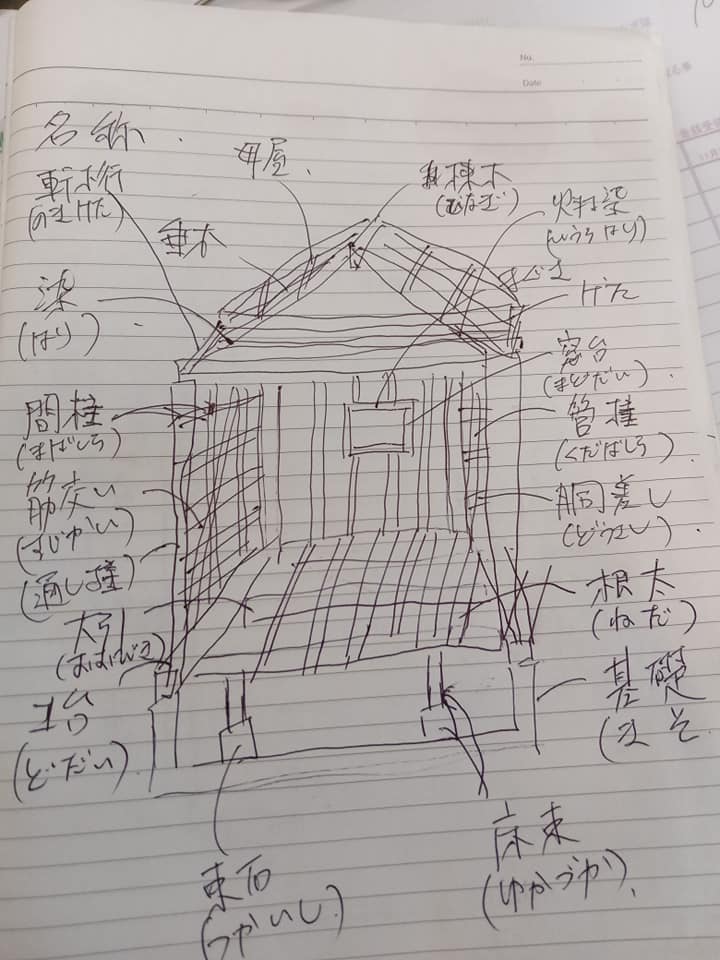 No.
Date
名称.
母屋.
棟木
(むなぎ)
軒桁
(のきけた)
垂木
(ひうちはり)
まぐさ
げた
梁
(はり)
窓台
(まどだい)
間柱
(まばしら)
管柱
(くだばしら)
筋交い
(すじかい)
胴差し
(どうさし)
(通し柱)
大引
(おおびき)
根太
(ねだ)
土台
(どだい)
基礎
(きそ
束石
(つかいし)
床束
(ゆかづか)